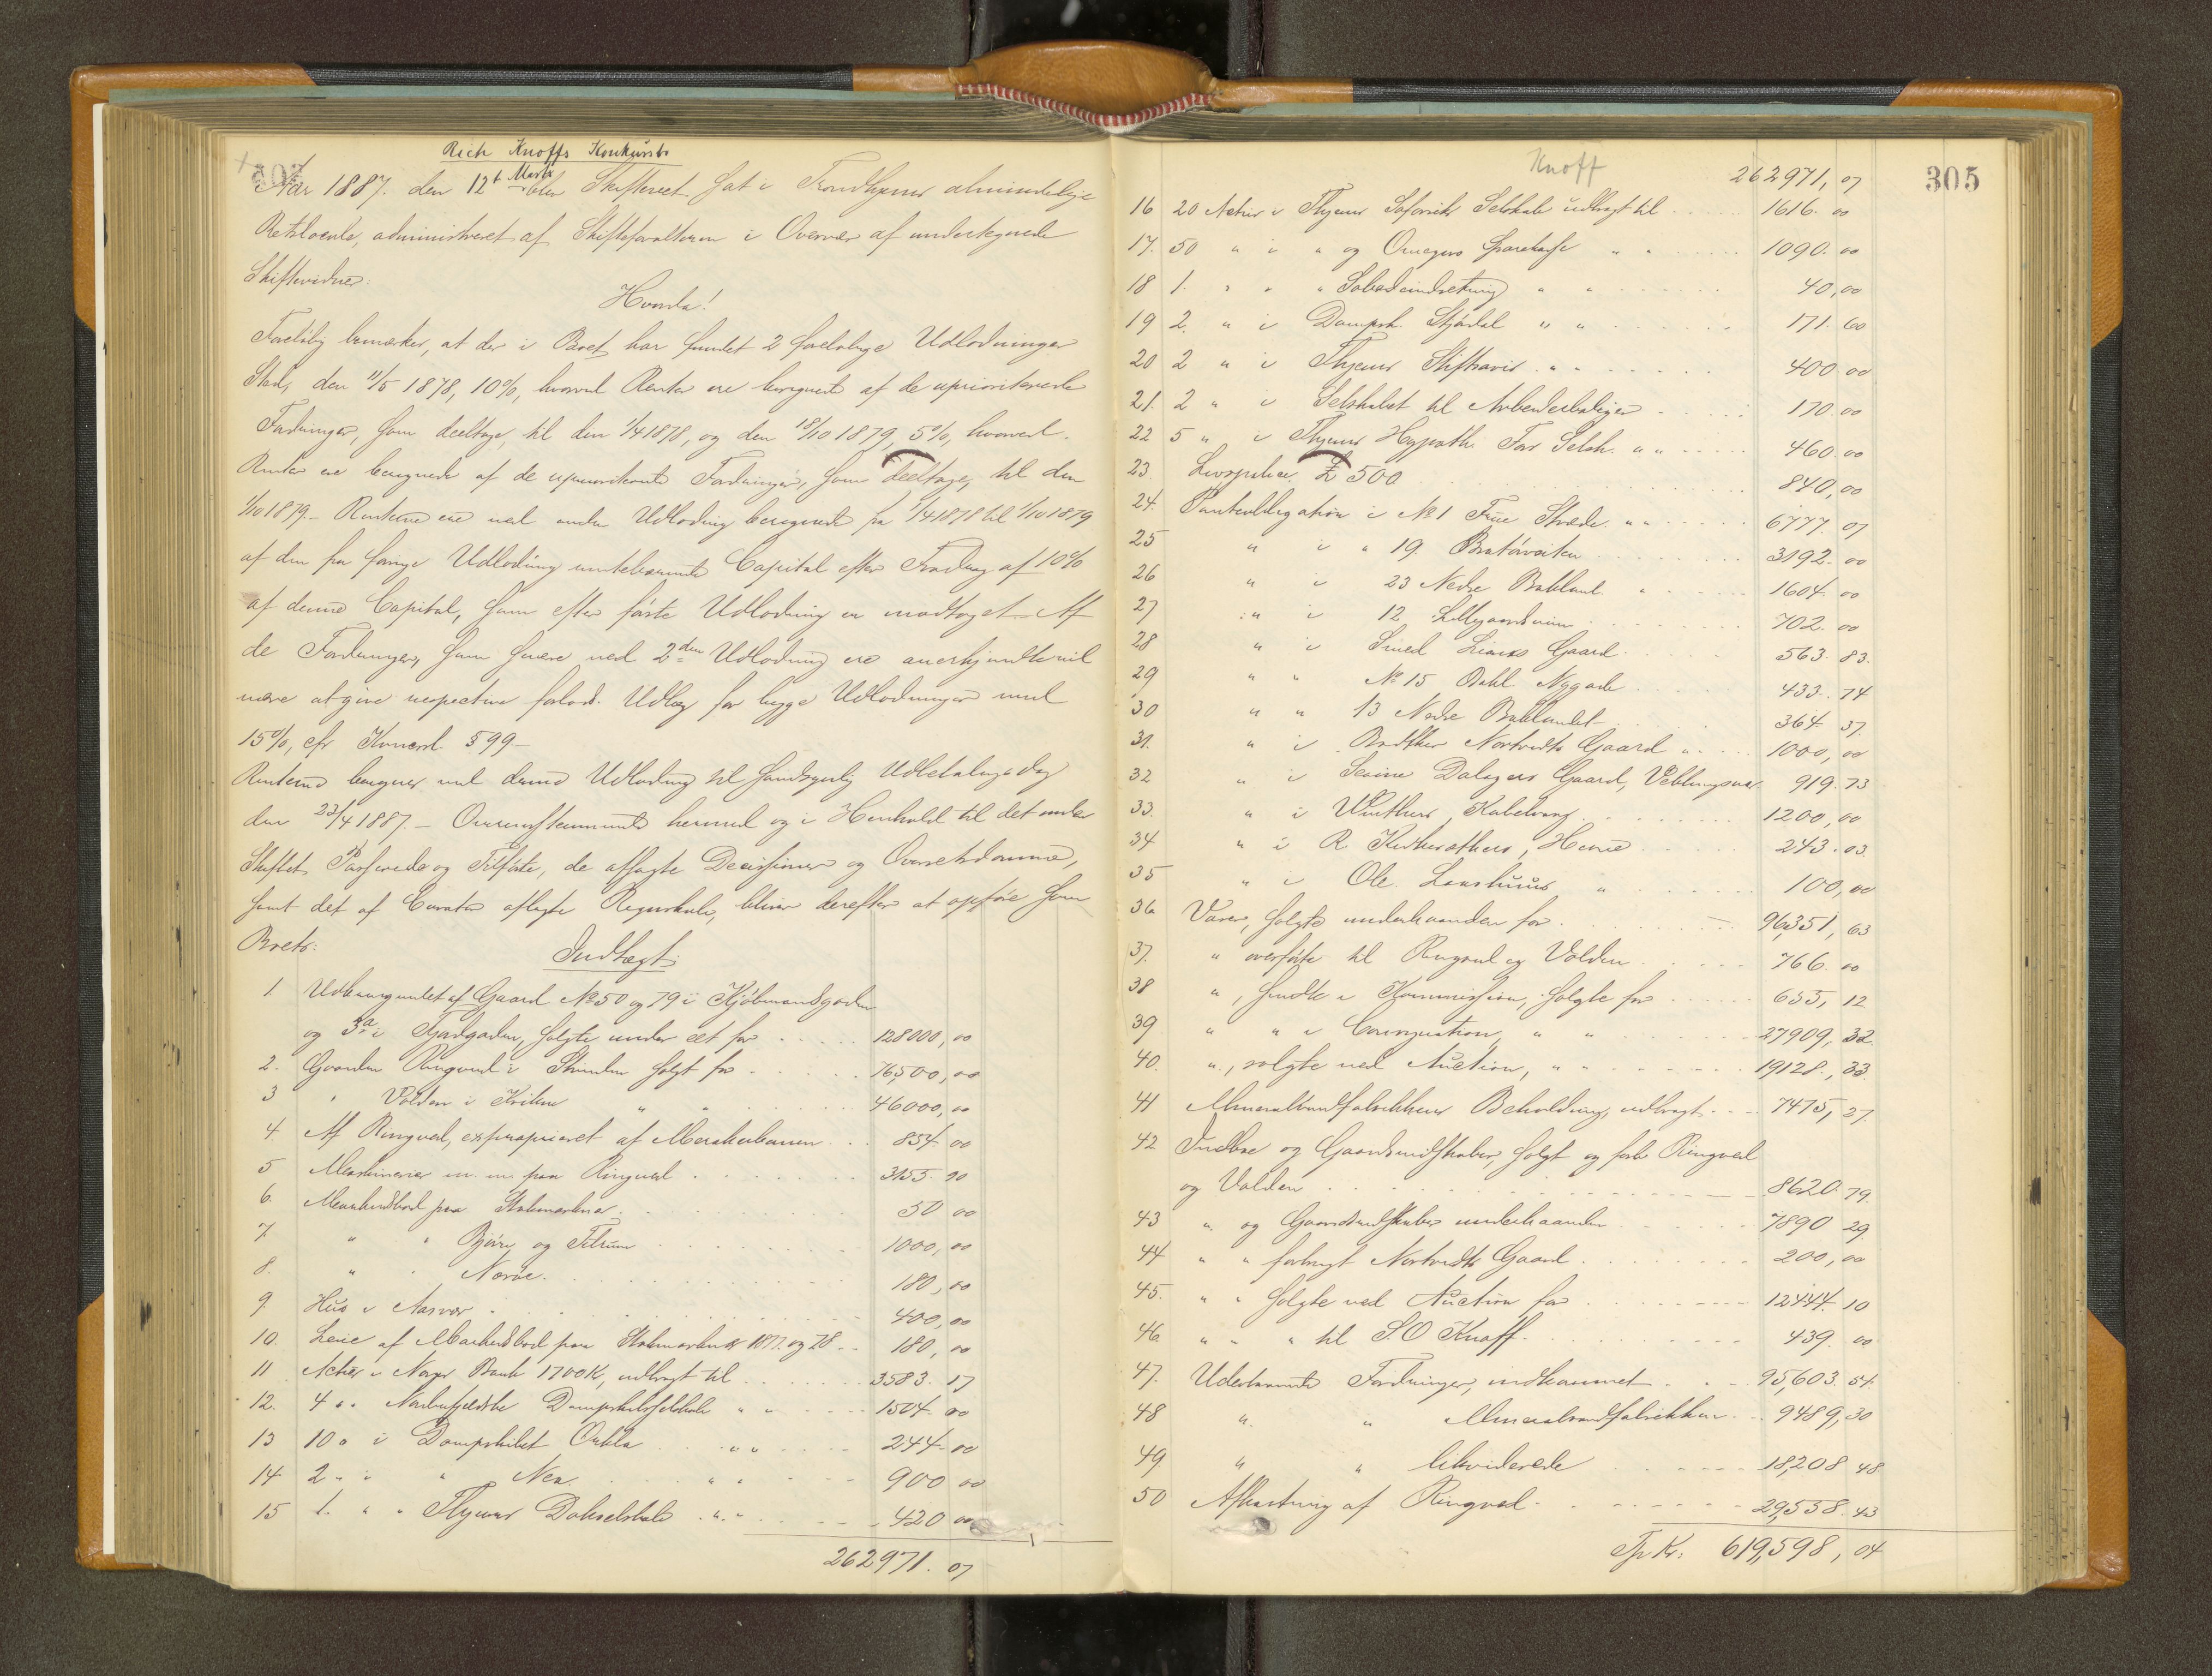 Rich Knoffs Konkursbo
Aar 1887 den 12te Marts blev Skifteret sat i Trondhjems almindelige
Retslocale, administreret af Skifteforvalteren i Overvær af undertegnede
Skiftevidner:
Hvorda!
Foreløbig bemærkes, at der i Boet har fundet 2 foreløbige Udlodninger
Sted, den 11/5 1878, 10%, hvorved Renter ere beregnede af de uprioriterede
Fordringer, som deeltage, til den 1/4 1878, og den 18/10 1879, 5%, hvorved
Renter ere beregnede af de uprioriterede Fordringer, som deeltage, til den
1/10 1879. – Renterne ere ved anden Udlodning beregnede fra 1/4 1878 til 1/10 1879
af den fra forrige Udlodning uindekomne Capital efter Fradrag af 10%
af denne Capital, som efter første Udlodning er modtaget. Af
de Fordringer, som senere end 2den Udlodning ere anerkjendte vil
være at give respective forlods Udlæg for begge Udlodninger med
15%, cfr Konkursl. § 99 –
Renterne beregnes ved denne Udlodning til sandsynlig Udbetalingsdag
den 23/4 1887. – Overensstemmende hermed og i Henhold til det under
Skiftet Passerede og Tilførte, de afsagte Decisioner og Overretsdomme,
samt det af Curator aflagte Regnskab, bliver derefter at opføre som
Boets:
Indtægt:
1. Udbringendet af Gaard No 50 og 79 i Kjøbmandsgaden
og 3a i Fjordgaden, solgte under eet for 128000,00
2. Gaarden Ringved i Strinden solgt for 76500,00
3 " Volden i " " 46000,00
4. Af Ringved, exproprieret af Merakerbanen 854 00
5 Maskinerier m. m. paa Ringved 3155. 90
6. Markedsbod paa Stokmarknes 50 00
7. " " Bjørn og Titran 1000,00
8. " " Norøe 180,00
9. Hus i Aasvær 400,00
10. Leie af Markedsbod paa Stokmarknes 1877 og 78 180,00
11 Actier i Norges Bank 1700 K, udbragt til 3583. 17
12. 4 " " Nordenfjeldske Dampskibsselskab " " 1504 00
13 10 " i Dampskibet Orkla " " 244 00
14 2 " i " Nea " " 900 00
15 1. " " Thjems Dokselskab " " 420 00
262971. 07
Knoff 305
262971, 07
16 20 Actier i Thjems Soforsikr Selskab udbragt til 1616. 00
17. 50 " i " og Omegns Sparekasse " " 1090. 00
18 1. " " " Søbadeindretning " " 40,00
19 2. " i Dampsk. Stjørdal " " 171. 60
20 2 " i Thjems Stiftsavis " " 400. 00
21. 2 " i Selskabet til Arbeiderboliger 170. 00
22 5 " i Thjems Hypoth. For Selsk. " " 460. 00
23. Livspolice £ 500 840,00
24. Panteobligation i No 1 Frue Stræde " " 6777. 07
25 " i " 19. Bratøveiten 3192. 00
26 " i 23 Nedre Baklandt " 1604 00
27 " i 12 702. 00
28 " i Smed Gaard 563. 83.
29 " " No 15 Bakl. Nygade 433. 74
30 " " 13 Nedre Baklandet 364 37
31. " i Bødtker Nortvedts Gaard " 1000,00
32 " i Dalagers Gaard, Veblungsnæs 919. 73
33. " i Winthers, Kabelvaag 1200,00
34 " i R. , 243. 03.
35 " i Ole 100,00
36 Varer, solgte underhaanden for 96,351,63
37. " overførte til Ringved og Volden 766. 00
38 ", sendte i Kommission, solgte for 655, 12
39 " " i Consignation, " " 27909, 32.
40. ", solgte ved Auction, " " 19128., 33.
41 Mineralvandfabrikkens Beholdning, udbragt 7475, 27.
42 Indboe og Gaardsredskaber, solgt og fork Ringved
og Volden 8620. 79.
43 " og Gaardsredskaber underhaanden 7890 29.
44 " " forbrugt Nortvedts Gaard 200,00
45. " " solgte ved Auction for 12444. 10
46 " " " til S.O Knoff 439. 00
47. Udestaaende Fordringer, indkommet 95,603. 54.
48 " " Mineralvandfabrikken 9489,30
49 " " likviderede 18,208 48
50 Afkastning af Ringved 29,558. 43
Tp Kr: 619,598, 04